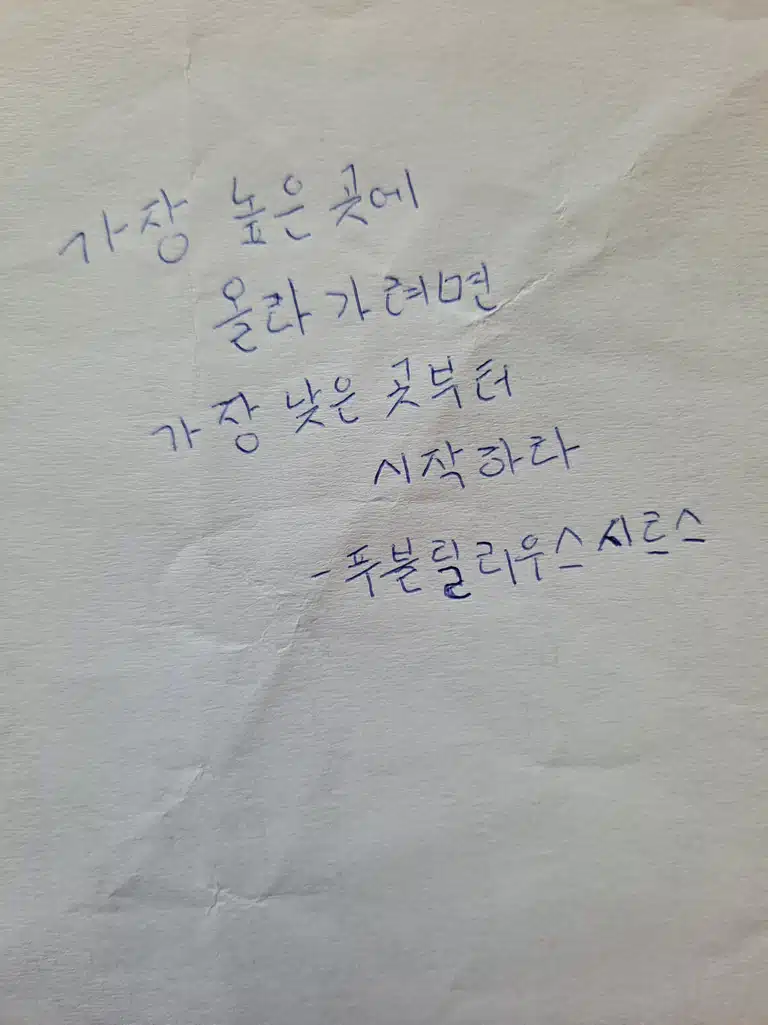 가장 높은 곳에
올라가려면
가장 낮은 곳부터
시작하라
-푸블릴리우스 시르스